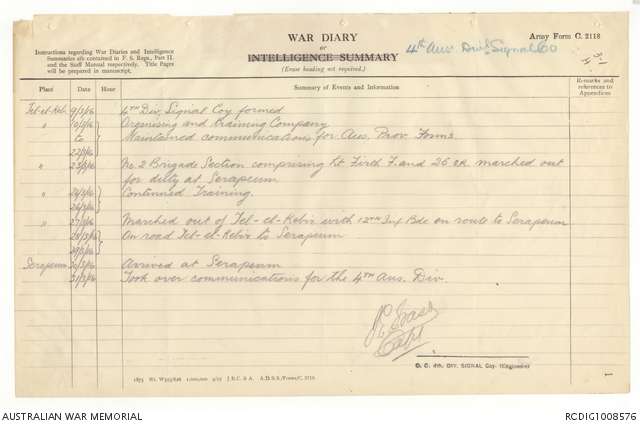 WAR DIARY
or
INTELLIGENCE SUMMARY
(Erase heading not required.)
Army Form C. 2118
4th Aus Divl Signal Co
Instructions regarding War Diaries and Intelligence
Summaries are contained in F. S. Regs., Part II.
and the Staff Manual respectively. Title Pages
will be prepared in manuscript.
Place Date Hour Summary of Events and Information Remarks and references to Appendices
Tel-el-Keb. 9/3/16 4TH Div. Signal Coy formed
" 10/3/16 Organising and training Company
to Maintained communications for Aus. Prov. Forms.
22/3/16
" 23/3/16 No 2 Brigade Section comprising Lt Firth F. and 26 OR marched out
for duty at Serapeum
" 24/3/16 Continued Training.
26/3/16
" 27/3/16 Marched out of Tel-el-Kebir with 12TH Inf Bde en route to Serapeum
28/3/16 On road Tel-el-Kebir to Serapeum
29/3/16
Serapeum 30/3/16 Arrived at Serapeum
31/3/16 Took over communications for the 4TH Aus. Div.
Capt
O. C. 4th. DIV. SIGNAL Coy. (Engineers)
1
1875 Wt. W593/826 1,000,000 4/15 J.B.C. & A. A.D.S.S./Forms/C. 2118.
AUSTRALIAN WAR MEMORIAL
RCDIG1008576